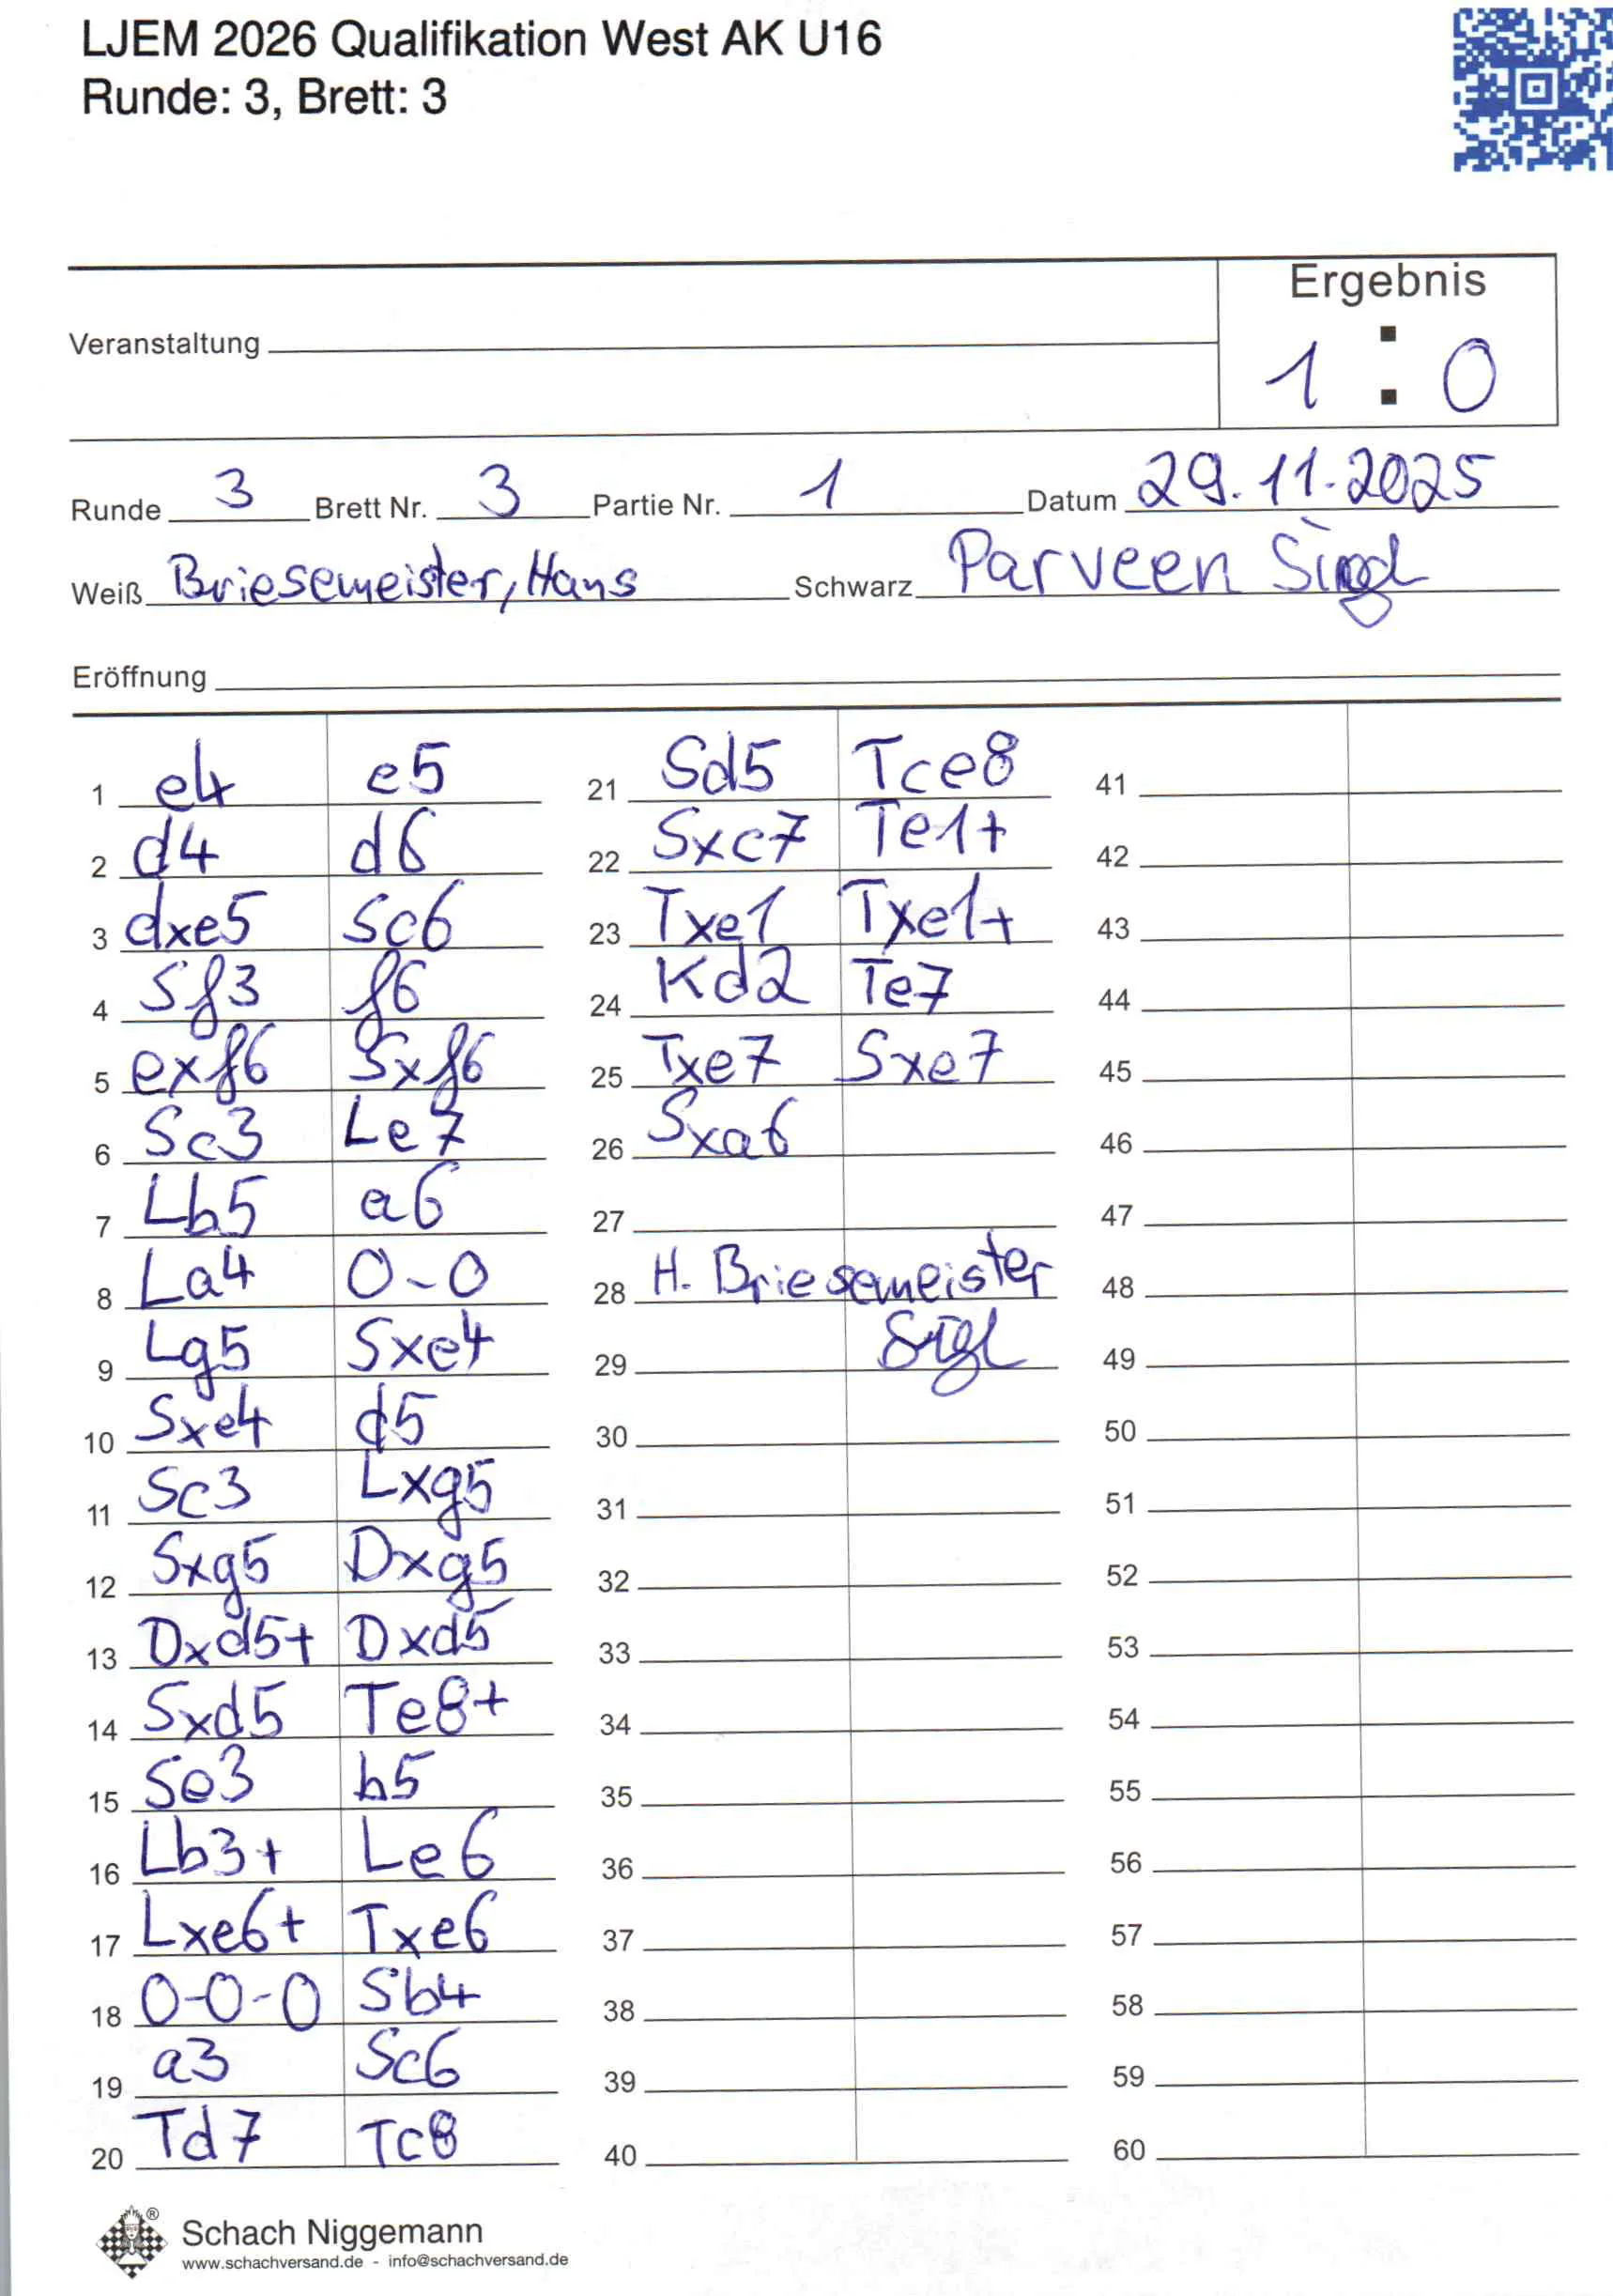 LJEM 2026 Qualifikation West AK U16
Runde: 3, Brett: 3
Ergebnis
Veranstaltung
1 : 0
Runde 3 Brett Nr. 3 Partie Nr. 1 Datum 29.11.2025
Weiß Briesemeister, Hans Schwarz Parveen
Eröffnung
1 e4 e5 21 Sd5 Tce8 41
2 d4 d6 22 Sxc7 Te1+ 42
3 dxe5 Sc6 23 Txe1 Txe1+ 43
4 Sf3 f6 24 Kd2 Te7 44
5 exf6 Sxf6 25 Txe7 Sxe7 45
6 Sc3 Le7 26 Sxa6 46
7 Lb5 a6 27 47
8 La4 0-0 28 H. Briesemeister 48
9 Lg5 Sxe4 29 49
10 Sxe4 d5 30 50
11 Sc3 Lxg5 31 51
12 Sxg5 Dxg5 32 52
13 Dxd5+ Dxd5 33 53
14 Sxd5 Te8+ 34 54
15 Se3 b5 35 55
16 Lb3+ Le6 36 56
17 Lxe6+ Txe6 37 57
18 0-0-0 Sb4 38 58
19 a3 Sc6 39 59
20 Td7 Tc8 40 60
® Schach Niggemann
www.schachversand.de - info@schachversand.de